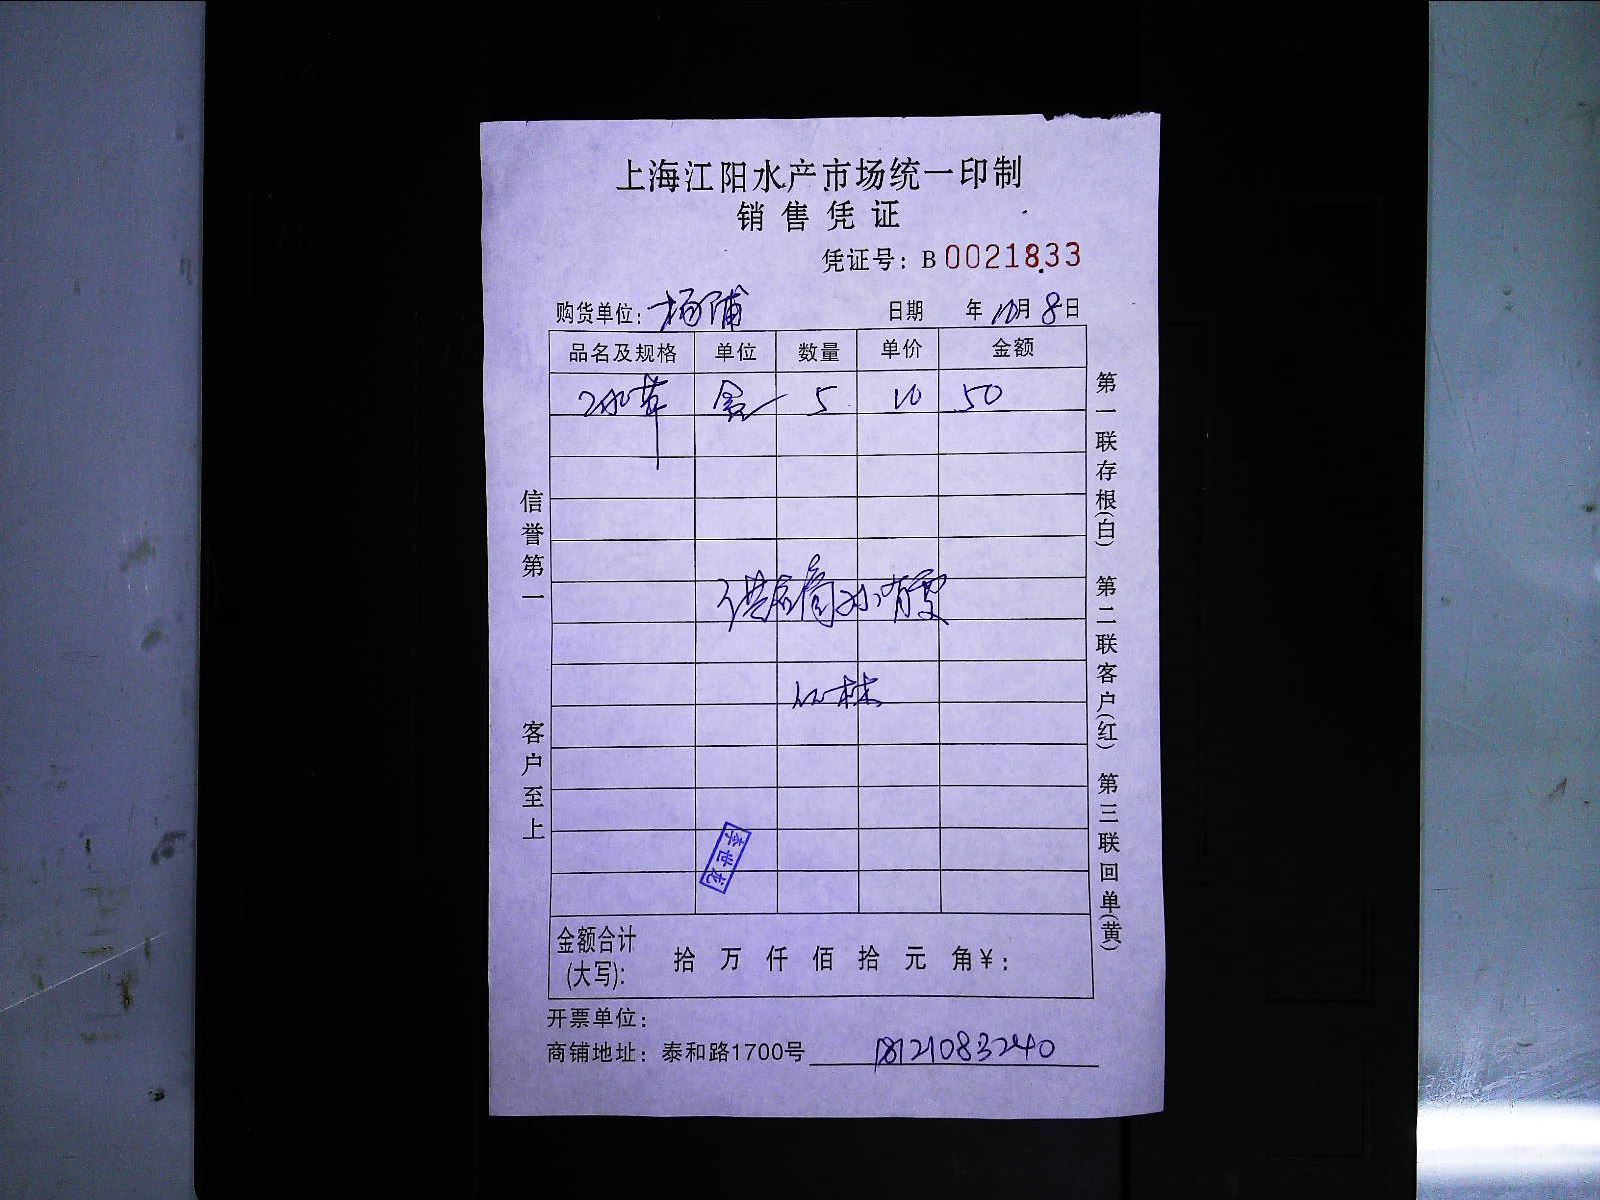 上海江阳水产市场统一印制
销售凭证
凭证号：B 0021833
购货单位：杨浦 日期 年 10月 8日
品名及规格 单位 数量 单价 金额
盒 5 10 50
供应商孙有雯
李世龙
金额合计(大写)： 拾 万 仟 佰 拾 元 角￥：
开票单位：
商铺地址：泰和路1700号 18121083240
信誉第一 客户至上
第一联存根(白) 第二联客户(红) 第三联回单(黄)